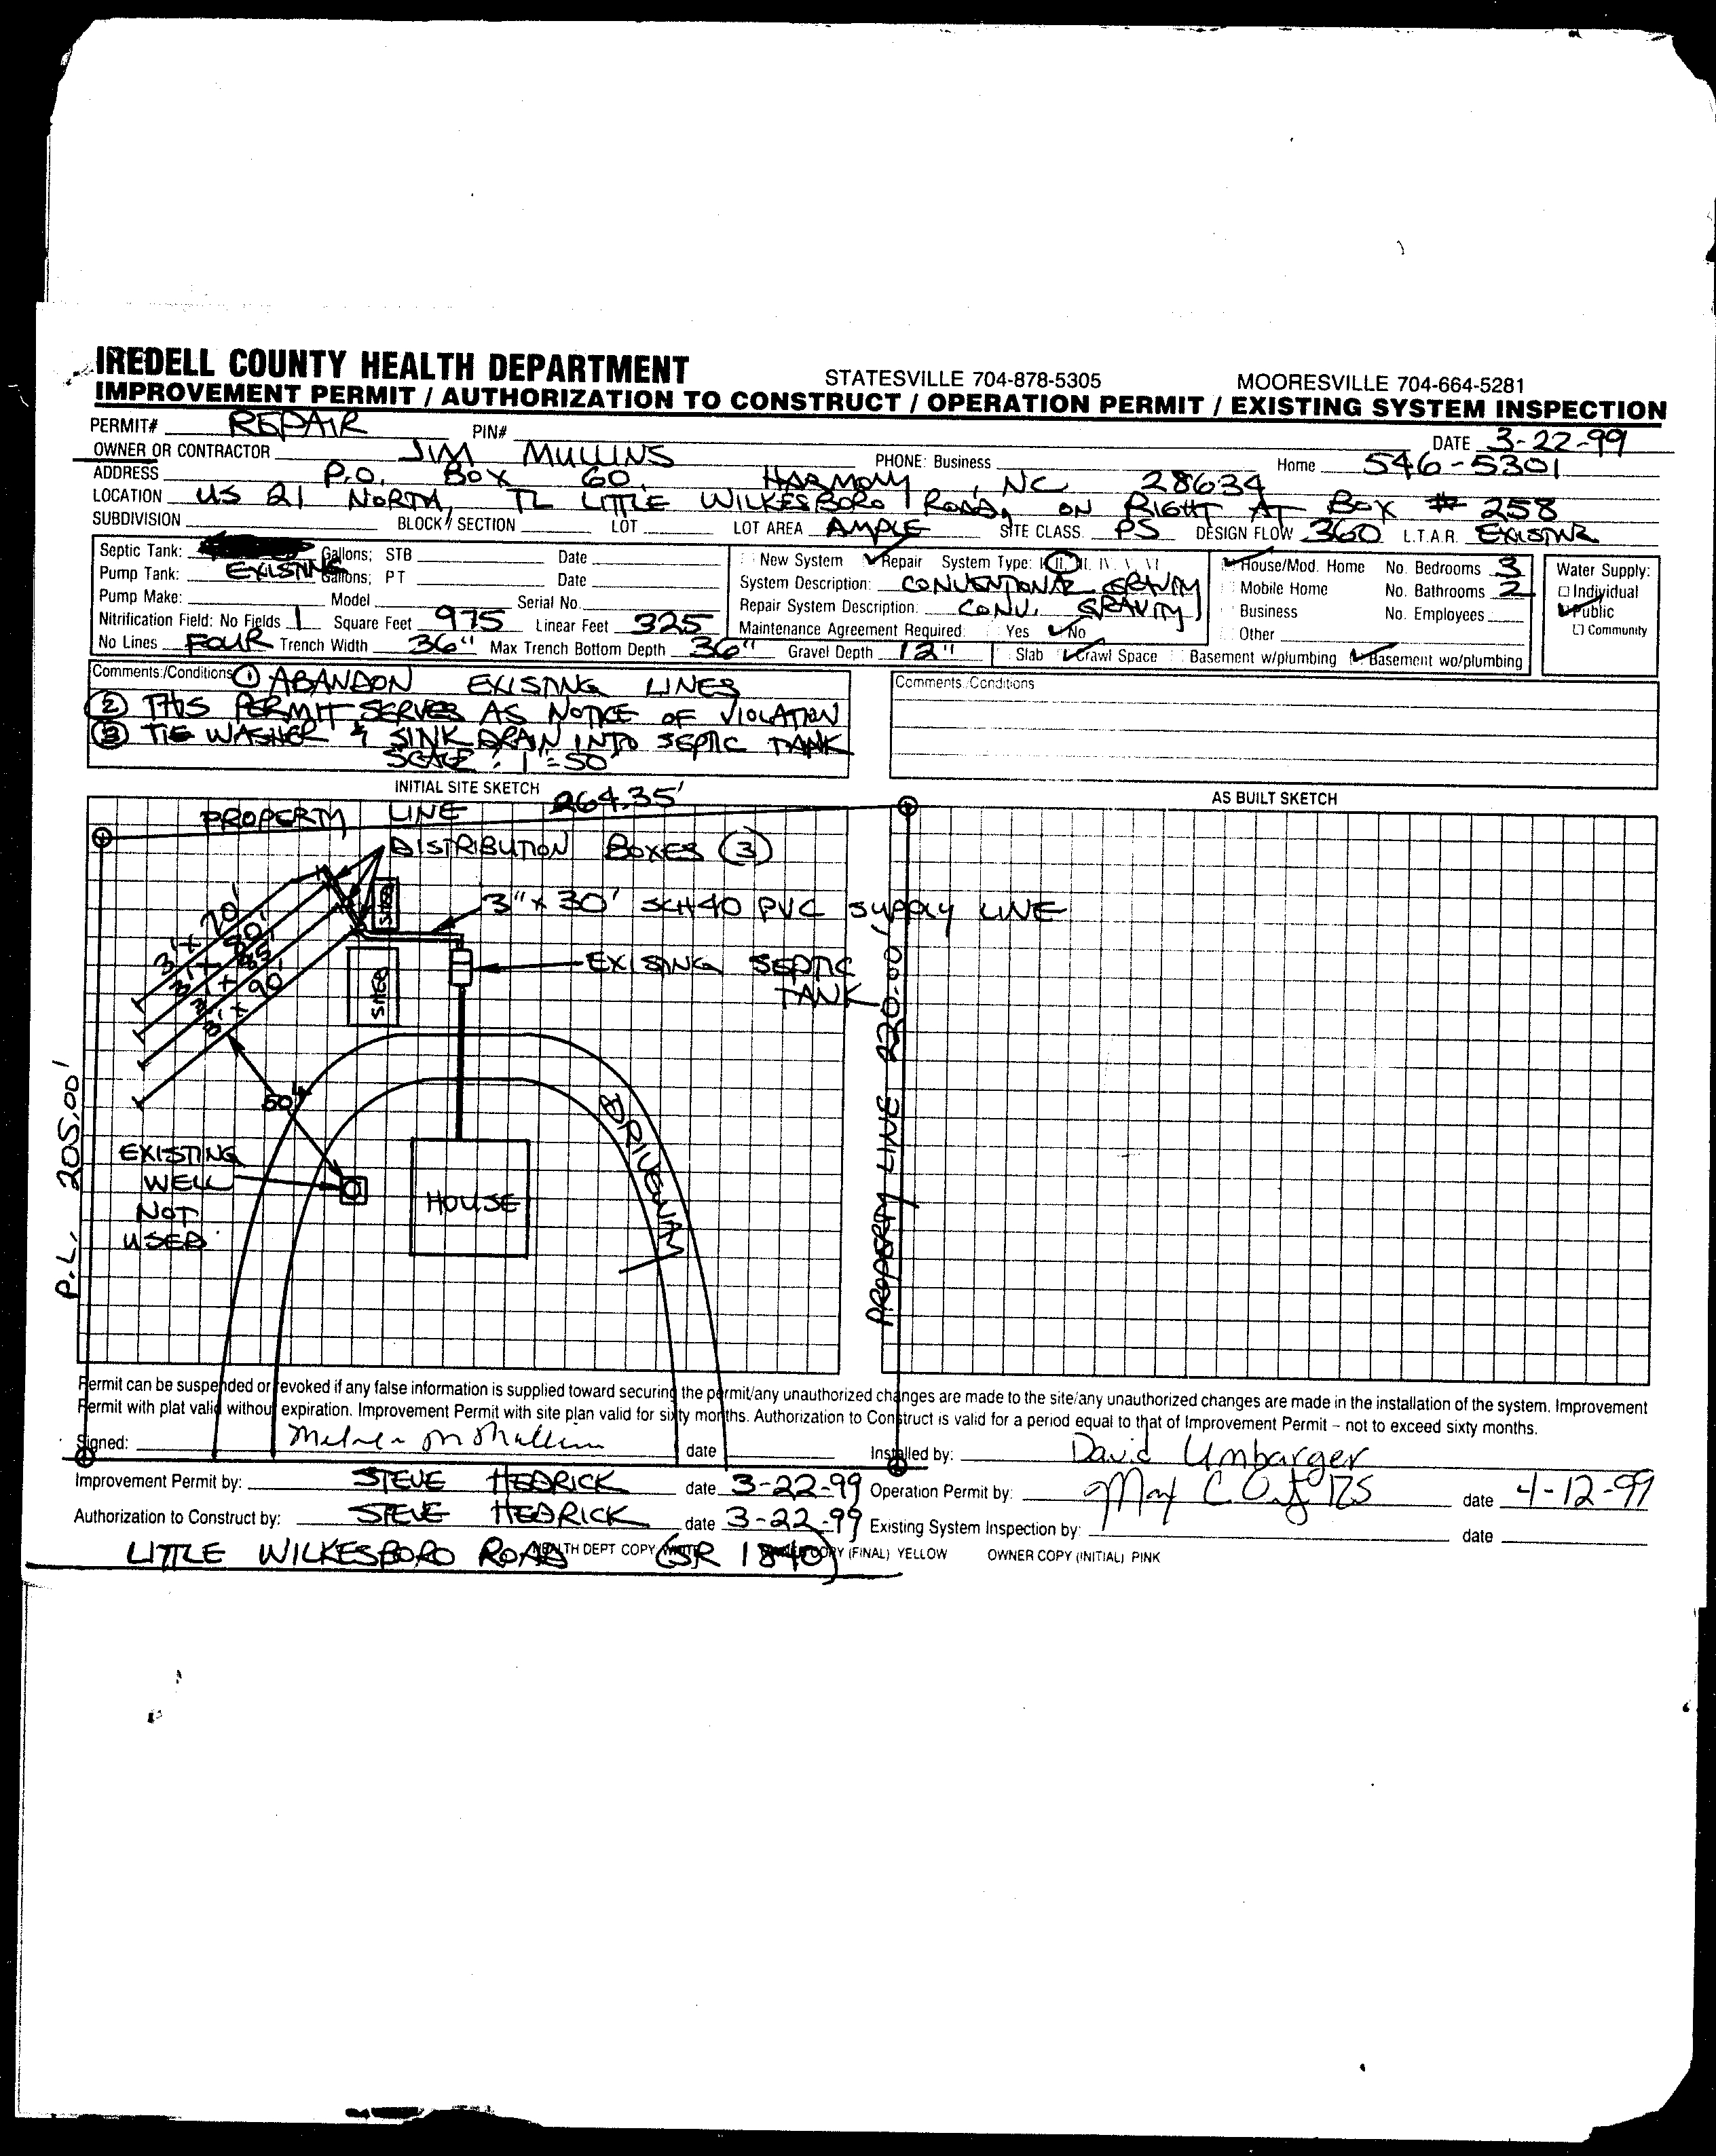 IREDELL COUNTY HEALTH DEPARTMENT STATESVILLE 704-878-5305 MOORESVILLE 704-664-5281
IMPROVEMENT PERMIT / AUTHORIZATION TO CONSTRUCT / OPERATION PERMIT / EXISTING SYSTEM INSPECTION
PERMIT# REPAIR PIN# DATE 3-22-99
OWNER OR CONTRACTOR JIM MULLINS PHONE: Business Home 546-5301
ADDRESS P.O. BOX 60 HARMONY, NC 28634
LOCATION US 21 NORTH, TL LITTLE WILKESBORO ROAD, ON RIGHT AT BOX # 258
SUBDIVISION BLOCK/SECTION LOT LOT AREA AMPLE SITE CLASS. PS DESIGN FLOW 360 L.T.A.R. EXISTING
Septic Tank: Gallons; STB Date New System Repair System Type: I II III. IV. V. VI House/Mod. Home No. Bedrooms 3 Water Supply:
Pump Tank: EXISTING Gallons; PT Date System Description: CONVENTIONAL GRAVITY Mobile Home No. Bathrooms 2 Individual
Pump Make: Model Serial No. Repair System Description: CONV. GRAVITY Business No. Employees Public
Nitrification Field: No Fields 1 Square Feet 975 Linear Feet 325 Maintenance Agreement Required: Yes No Other Community
No Lines FOUR Trench Width 36" Max Trench Bottom Depth 36" Gravel Depth 12" Slab Crawl Space Basement w/plumbing Basement wo/plumbing
Comments/Conditions ① ABANDON EXISTING LINES Comments/Conditions
② THIS PERMIT SERVES AS NOTICE OF VIOLATION
③ TIE WASHER & SINK DRAIN INTO SEPTIC TANK
SCALE: 1"=50'
INITIAL SITE SKETCH AS BUILT SKETCH
PROPERTY LINE 264.35'
DISTRIBUTION BOXES (3)
SHED
3" x 30' SCH40 PVC SUPPLY LINE
3' x 70'
3' x 80'
3' x 85'
3' x 90'
SHED
EXISTING SEPTIC
TANK
P.L. 205.00'
PROPERTY LINE 220.00'
50'
DRIVEWAY
EXISTING
WELL
NOT
USED
HOUSE
Permit can be suspended or revoked if any false information is supplied toward securing the permit/any unauthorized changes are made to the site/any unauthorized changes are made in the installation of the system. Improvement
Permit with plat valid without expiration. Improvement Permit with site plan valid for sixty months. Authorization to Construct is valid for a period equal to that of Improvement Permit – not to exceed sixty months.
Signed: date Installed by: David Umbarger
Improvement Permit by: STEVE HEDRICK date 3-22-99 Operation Permit by: date 4-12-99
Authorization to Construct by: STEVE HEDRICK date 3-22-99 Existing System Inspection by: date
LITTLE WILKESBORO ROAD (SR 1840)
HEALTH DEPT COPY WHITE COPY (FINAL) YELLOW OWNER COPY (INITIAL) PINK